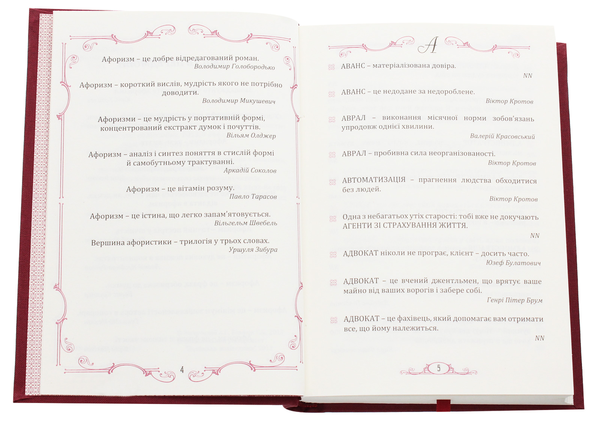 Афоризм – це добре відредагований роман.
Володимир Голобородько
Афоризм – короткий вислів, мудрість якого не потрібно
доводити.
Володимир Микушевич
Афоризми – це мудрість у портативній формі,
концентрований екстракт думок і почуття.
Вільям Олджер
Афоризм – аналіз і синтез поняття в стислій формі
й самобутньому трактуванні.
Аркадій Соколов
Афоризм – це вітамін розуму.
Павло Тарасов
Афоризм – це істина, що легко запам'ятовується.
Вільгельм Швебель
Вершина афористики – трилогія у трьох словах.
Уршула Зибура
4
А
АВАНС – матеріалізована довіра.
NN
АВАНС – це недодане за недороблене.
Віктор Кротов
АВРАЛ – виконання місячної норми зобов'язань
упродовж однієї хвилини.
Валерій Красовський
АВРАЛ – пробивна сила неорганізованості.
Віктор Кротов
АВТОМАТИЗАЦІЯ – прагнення людства обходитися
без людей.
Віктор Кротов
Одна з небагатьох утіх старості: тобі вже не докучають
АГЕНТИ ЗІ СТРАХУВАННЯ ЖИТТЯ.
NN
АДВОКАТ ніколи не програє, клієнт – досить часто.
Юзеф Булатович
АДВОКАТ – це вчений джентльмен, що врятує ваше
майно від ваших ворогів і забере собі.
Генрі Пітер Брум
АДВОКАТ – це фахівець, який допомагає вам отримати
все, що йому належиться.
NN
5